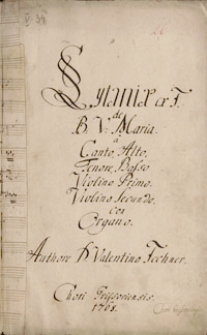 Lytaniæ ex F.
de
B. V. Maria.
a
Canto, Alto,
Tenore, Basso
Violino Primo.
Violino Secundo.
con
Organo.
Authore D. Valentino Fechner.
Chori Grissoviensis.
1768.